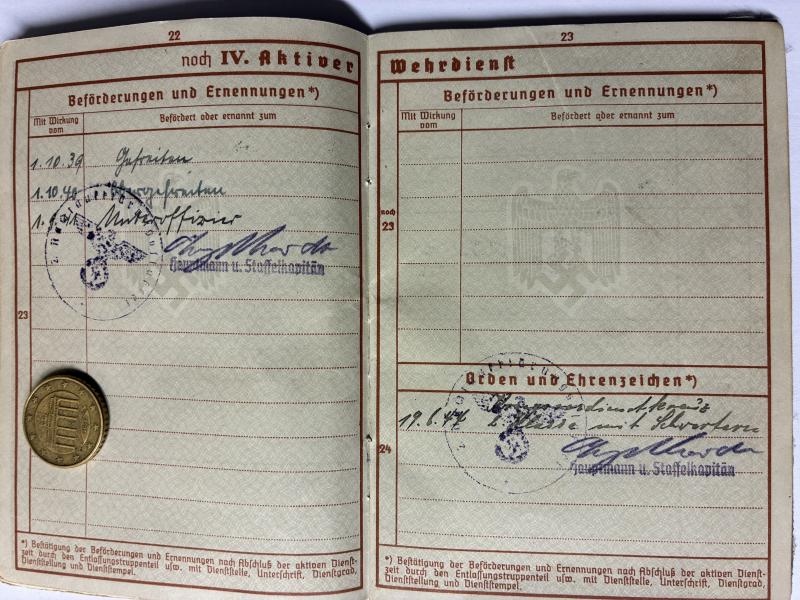 22
noch IV. Aktiver
Beförderungen und Ernennungen*)
Mit Wirkung vom
Befördert oder ernannt zum
1.10.39 Gefreiten
1.10.40 Obergefreiten
Unteroffizier
Hauptmann u. Staffelkapitän
23
*) Bestätigung der Beförderungen und Ernennungen nach Abschluß der aktiven Dienst-
zeit durch den Entlassungstruppenteil usw. mit Dienststelle, Unterschrift, Dienstgrad,
Dienststellung und Dienststempel.
23
Wehrdienst
Beförderungen und Ernennungen*)
Mit Wirkung vom
Befördert oder ernannt zum
noch
23
Orden und Ehrenzeichen*)
19.6.44
Klasse mit Schwertern
24
Hauptmann u. Staffelkapitän
*) Bestätigung der Beförderungen und Ernennungen nach Abschluß der aktiven Dienst-
zeit durch den Entlassungstruppenteil usw. mit Dienststelle, Unterschrift, Dienstgrad,
Dienststellung und Dienststempel.